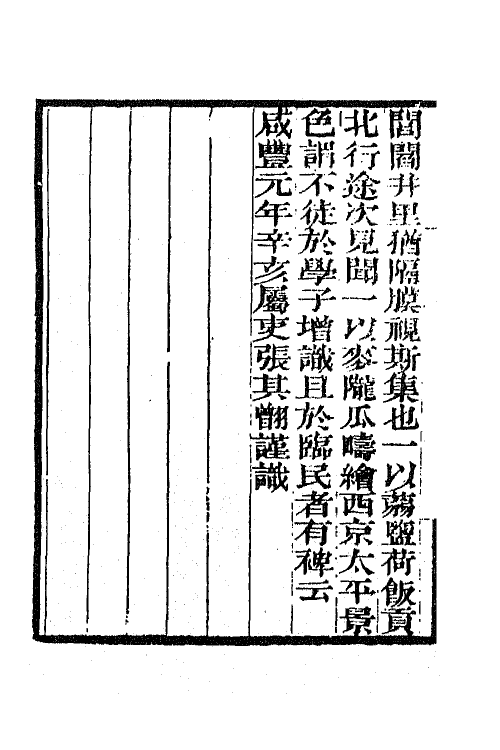 閭閻井里猶隔膜視斯集也一以蒭鹽荷飯貢
北行途次見聞一以麥隴瓜疇繪西京太平景
色謂不徒於學子增識且於臨民者有裨云
咸豐元年辛亥屬吏張其翿謹識